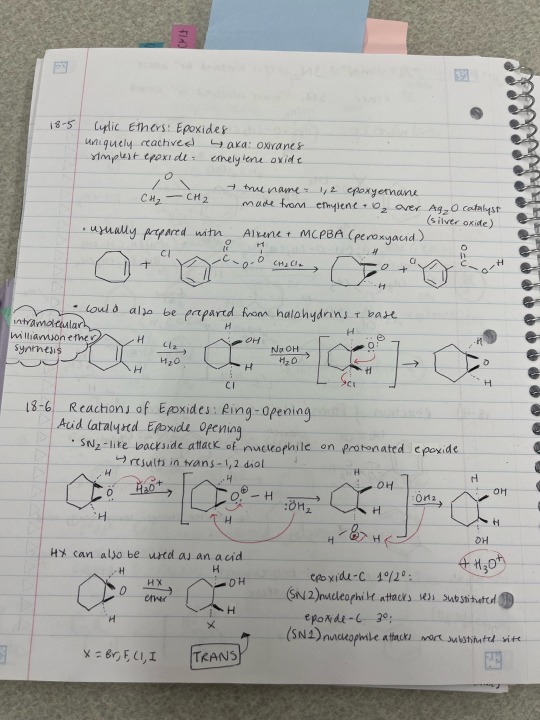 18-5 Cyclic Ethers: Epoxides
uniquely reactive :) ↳ aka: oxiranes
simplest epoxide = ethelytene oxide
O
CH2 — CH2
→ true name = 1,2 epoxyethane
made from ethylene + O2 over Ag2O catalyst
(silver oxide)
• usually prepared with Alkene + MCPBA (peroxyacid)
+ Cl O C O O H CH2Cl2 → H O H + Cl O C O H
• could also be prepared from halohydrins + base
intramolecular
williamson ether
synthesis
H H Cl2 H2O → H OH H Cl NaOH H2O → [ H O⊖ H Cl ] → H O H
18-6 Reactions of Epoxides: Ring-Opening
Acid Catalysed Epoxide Opening
• SN2-like backside attack of nucleophile on protonated epoxide
↳ results in trans-1,2 diol
H O H H3O+ → [ H O⊕ — H H :ÖH2 → H OH H H O⊕ H ] ÖH2 → H OH H OH
+ H3O+
HX can also be used as an acid
H O H HX ether → H OH H X
epoxide-C 1°/2°:
(SN2) nucleophile attacks less substituted
epoxide-C 3°:
(SN1) nucleophile attacks more substituted site
X = Br, F, Cl, I
TRANS